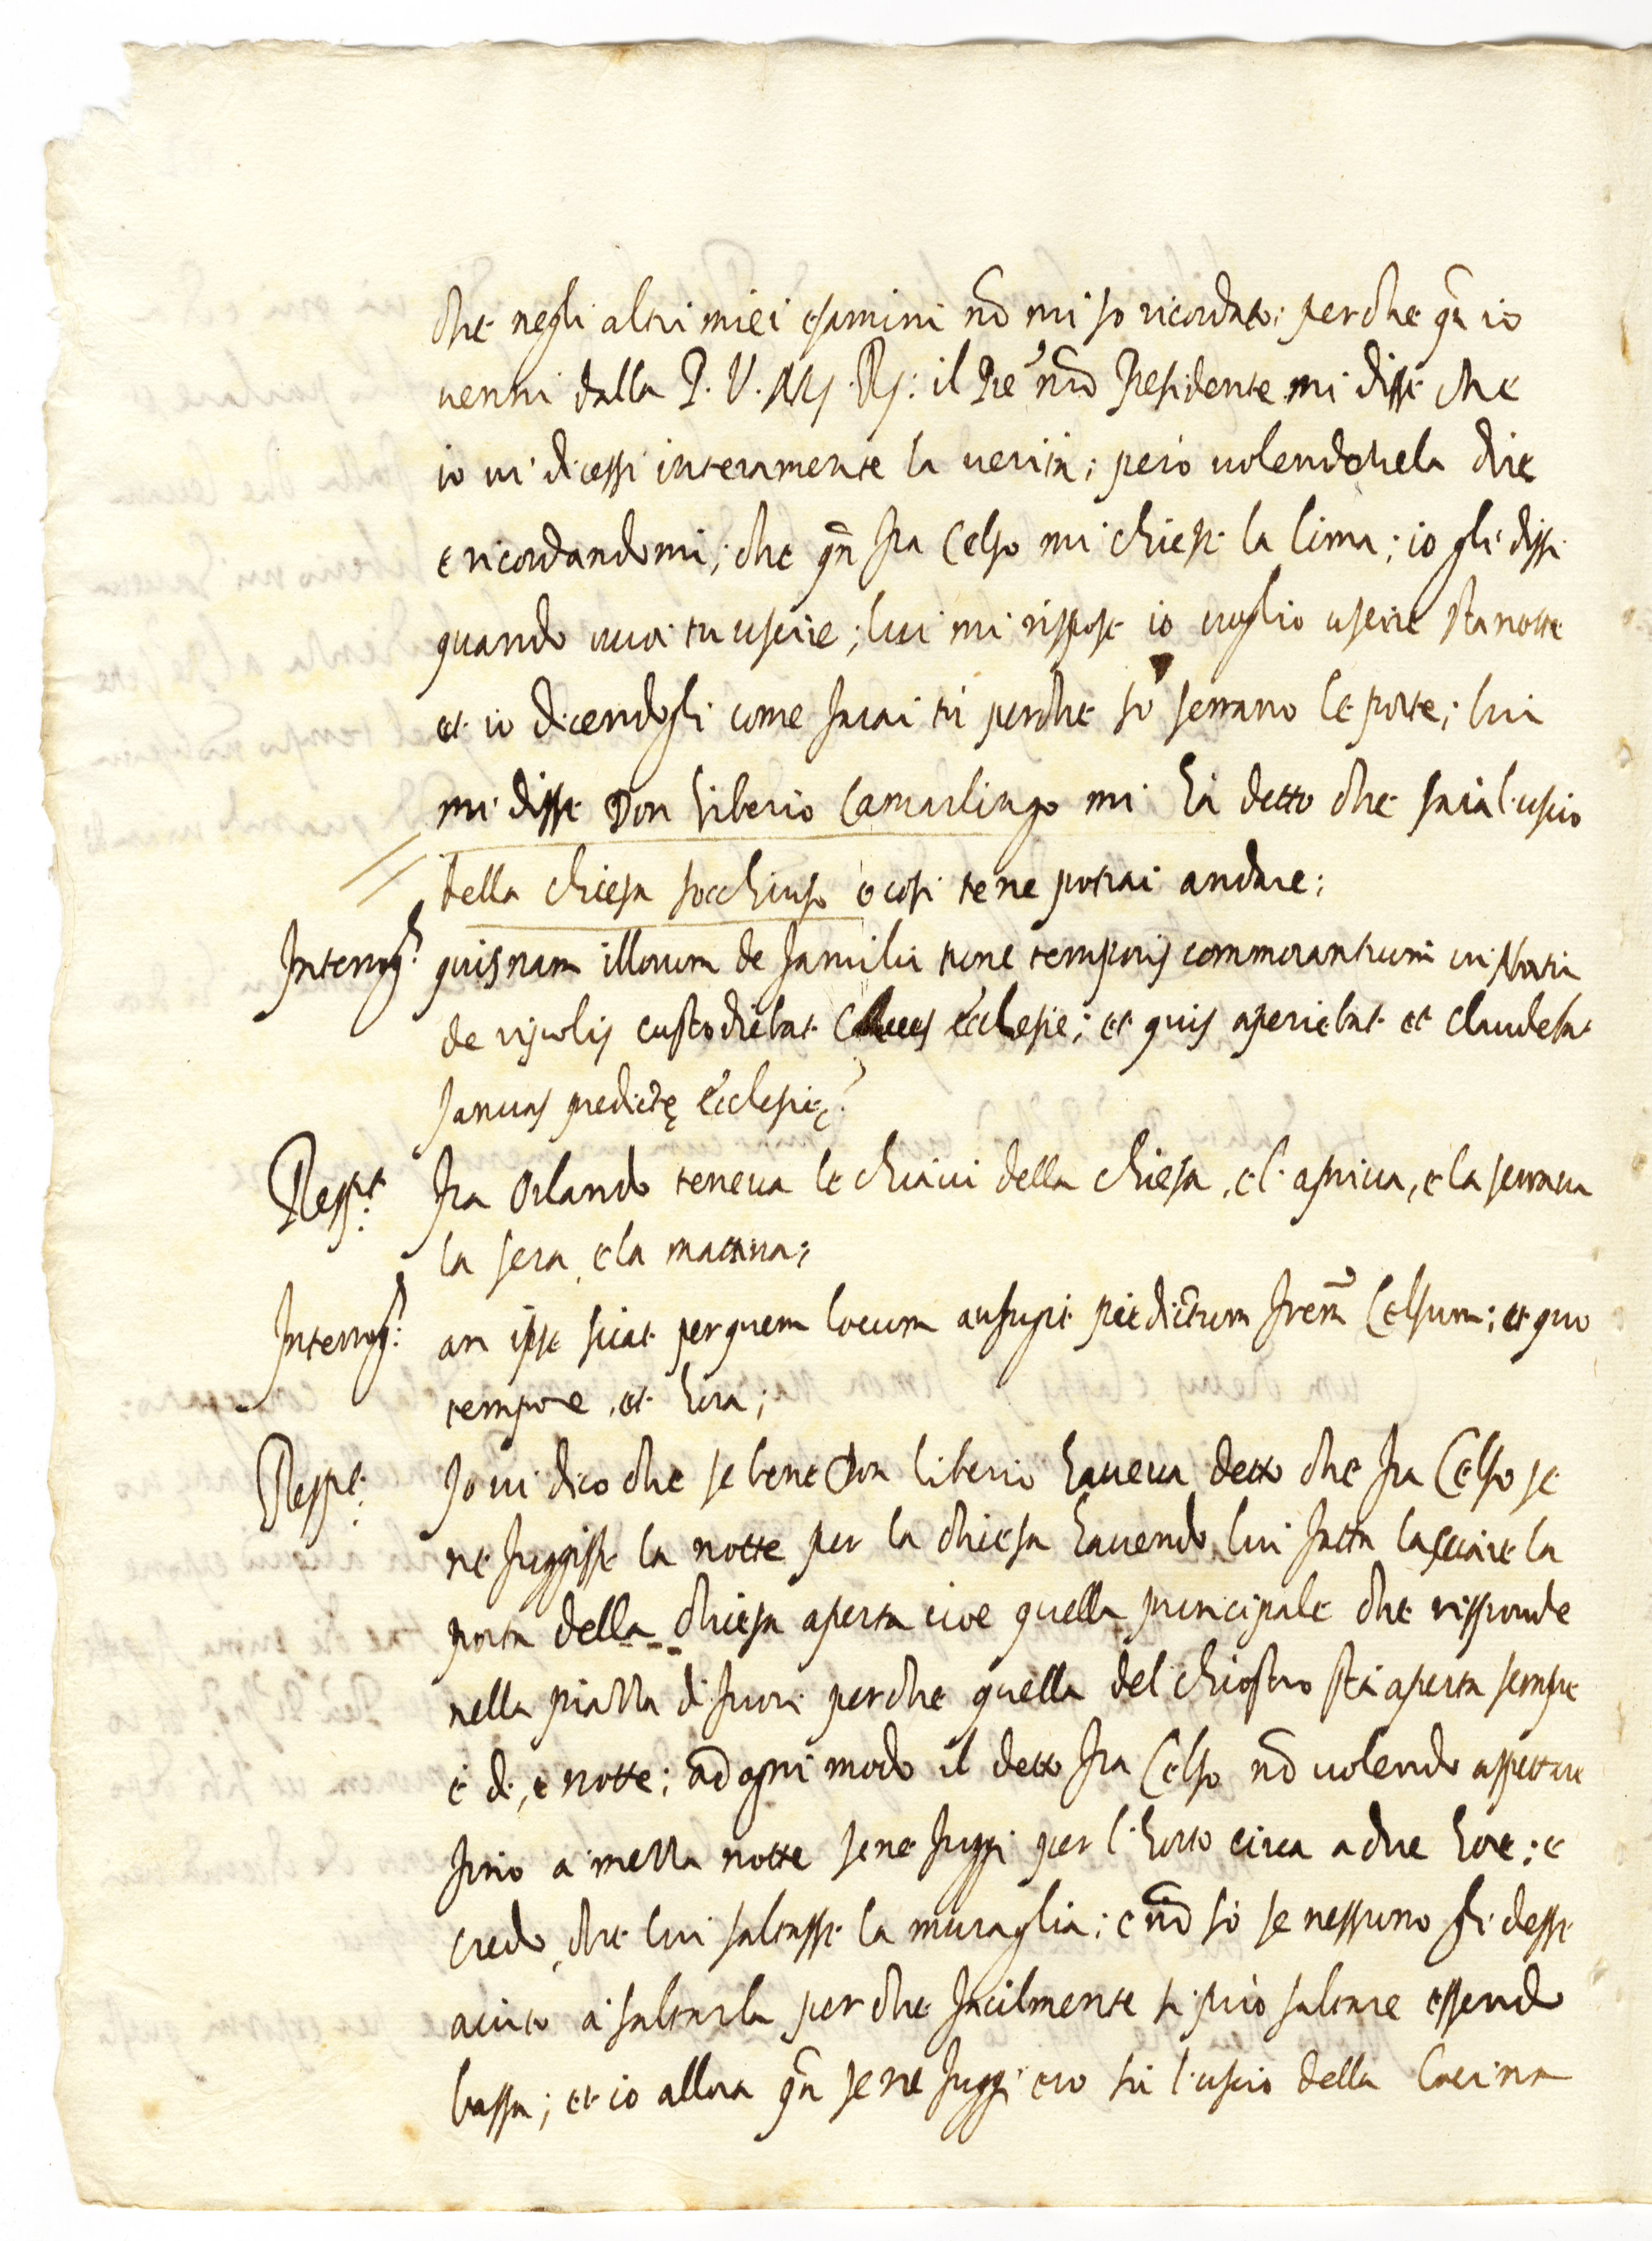 che negli altri miei esamini nõ mi so ricordato; perche qñ io
venni dalla P. V. M. R.: il Pre nr̃o Presidente mi disse che
io vi dicessi interamente la verità; però volendohela dire
e ricordandomi, che qñ fra Celso mi chiese la lima; io gli dissi
quando vuoi tu uscire; lui mi rispose io voglio uscire stanotte
et io dicendogli come farai tu perche si serrano le porte; lui
mi disse Don Liberio Camarlingo mi hà detto che farà l'uscio
della chiesa socchiuso e così tene potrai andare;
Interrog.s quisnam illorum de familia tunc temporis commorantium in
de ripolis custodiebat claves Ecclesie; et quis aperiebat et claudebat
Januas predictę Ecclesię?
Resp.t fra Orlando teneva le chiavi della chiesa, e l'apriva, e la serrava
la sera, e la mattina;
Interrog.s an ipse sciat per quem locum aufugit predictum frem̃ Celsum; et quo
tempore, et hora;
Resp.t Io vi dico che se bene Don Liberio haveva detto che fra Celso se
ne fuggisse la notte per la chiesa havendo lui fatta lasciare la
porta della chiesa aperta cioe quella principale che risponde
nella piazza di fuori perche quella del chiostro stà aperta sempre
e dì, e notte; ad ogni modo il detto fra Celso nõ volendo aspettare
fino a mezza notte sene fuggi per l'horto circa a due hore; e
credo, che lui saltasse la muraglia; e nõ sò se nessuno gli desse
aiuto a saltarla perche facilmente si può saltare essendo
bassa; et io allora qñ sene fuggi ero sù l'uscio della Cucina